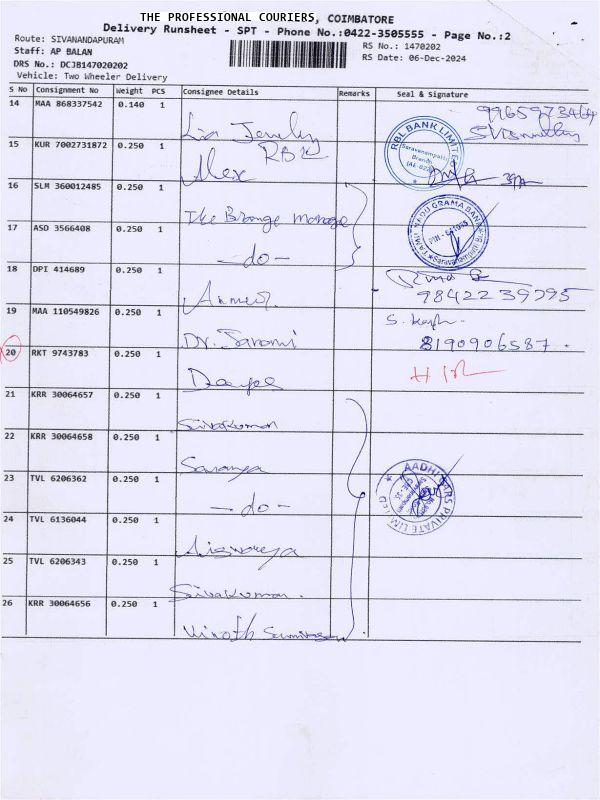 THE PROFESSIONAL COURIERS, COIMBATORE
Delivery Runsheet - SPT - Phone No.:0422-3505555 - Page No.:2
Route: SIVANANDAPURAM
RS No.: 1470202
Staff: AP BALAN
RS Date: 06-Dec-2024
DRS No.: DCJB147020202
Vehicle: Two Wheeler Delivery
S No Consignment No Weight PCS Consignee Details Remarks Seal & Signature
14 MAA 868337542 0.140 1 9965973464
15 KUR 7002731872 0.250 1 Alex RBK
RBL BANK LIMITED
Saravanampatti
Branch
16 SLM 360012485 0.250 1 The Branage manage
TAMIL NADU GRAMA BANK
17 ASD 3566408 0.250 1 - do -
18 DPI 414689 0.250 1 9842239795
19 MAA 110549826 0.250 1 Dr. Saromi 8190906587.
20 RKT 9743783 0.250 1 Deepe
21 KRR 30064657 0.250 1 Sivakumar
22 KRR 30064658 0.250 1 Saranya
AADHI CARS PRIVATE LIMITED
23 TVL 6206362 0.250 1 - do -
24 TVL 6136044 0.250 1 Aiswarya
25 TVL 6206343 0.250 1 Sivakumar.
26 KRR 30064656 0.250 1